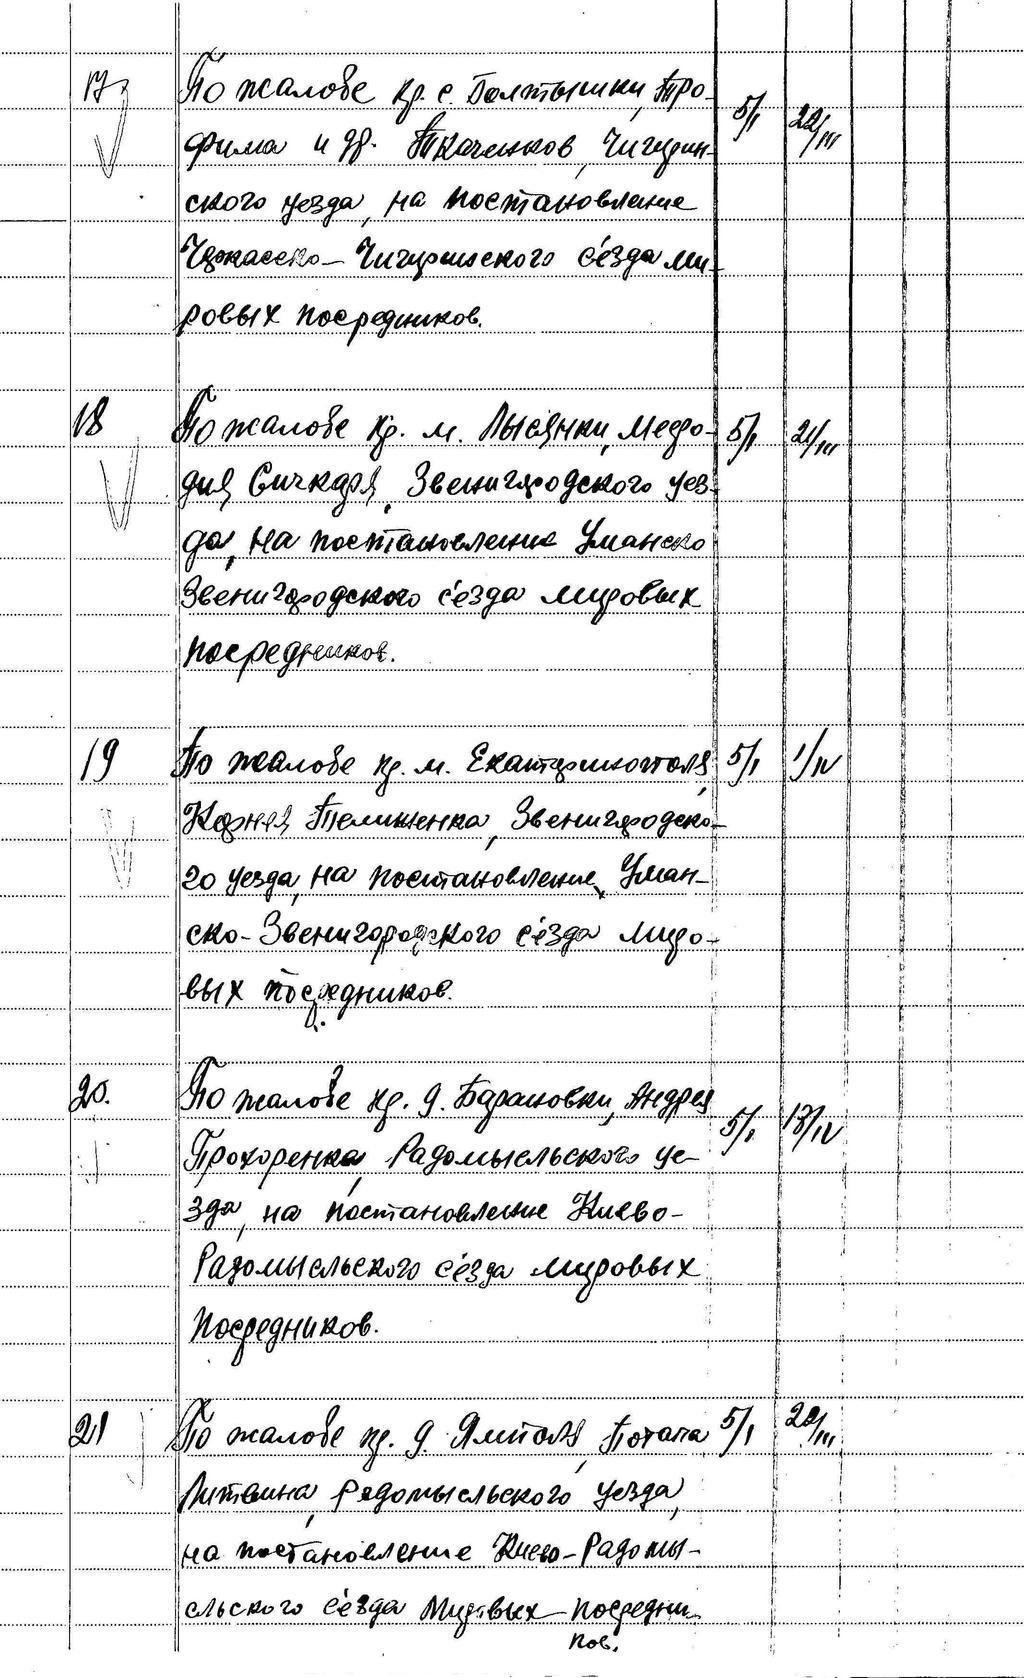 17 По жалобе кр. с. Болтышки, Тро-
фима и др. Ткаченков, Чигирин- 5/I 22/III
ского уезда, на постановление
Черкасско-Чигиринского съезда ми-
ровых посредников.
18 По жалобе кр. м. Лысянки, Мефо- 5/I 21/III
дия Сичкаря, Звенигородского уез-
да, на постановление Уманско
Звенигородского съезда мировых
посредников.
19 По жалобе кр. м. Екатеринополя, 5/I 1/IV
Корнея Телиженка, Звенигородско-
го уезда, на постановление Уман-
ско-Звенигородского съезда миро-
вых посредников.
20. По жалобе кр. д. Барановки, Андрея
Прохоренка, Радомысльского уе- 5/I 13/IV
зда, на постановление Киево-
Радомысльского съезда мировых
посредников.
21 По жалобе кр. д. Ямполя, Потапа 5/I 22/III
Литвина, Радомысльского уезда,
на постановление Киево-Радомы-
сльского съезда мировых посредни
ков.